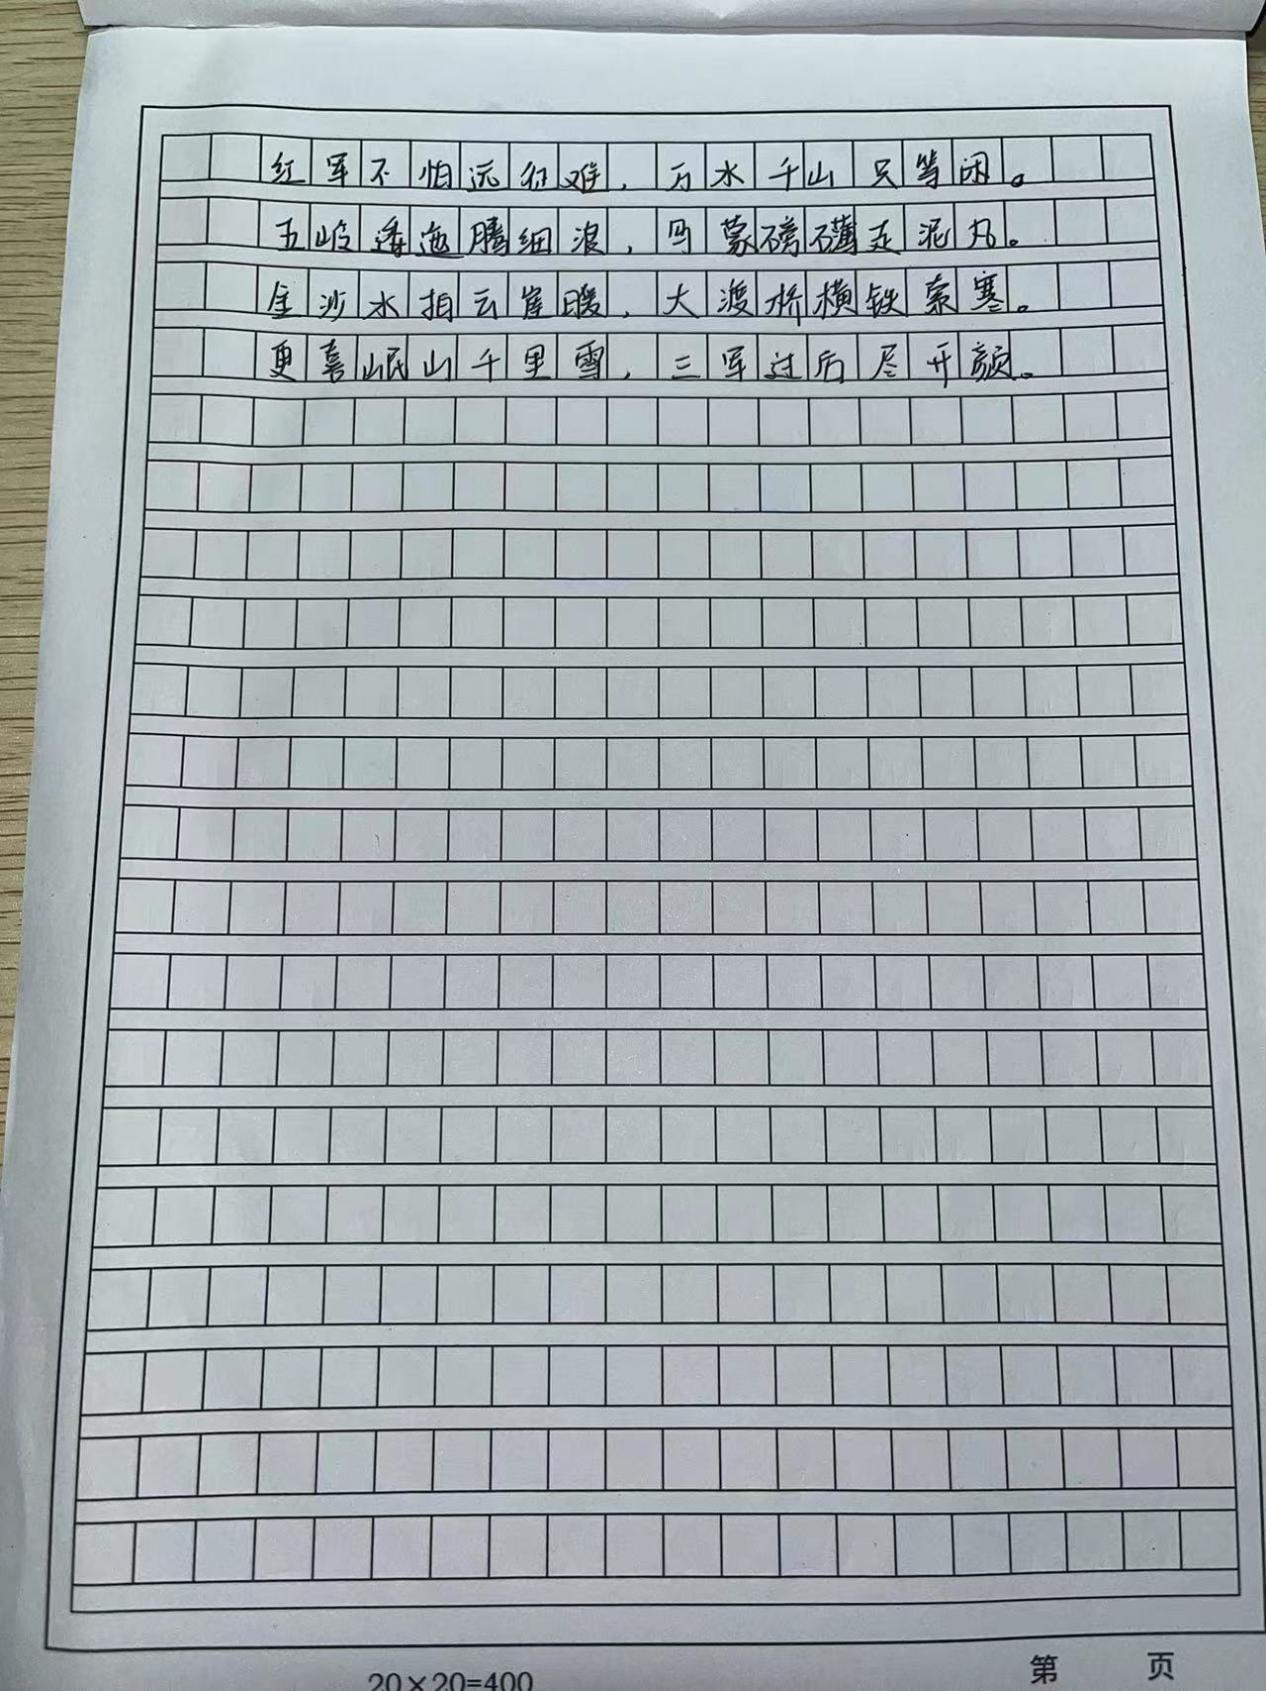 红军不怕远征难，万水千山只等闲。
五岐逶迤腾细浪，乌蒙磅礴走泥丸。
金沙水拍云崖暖，大渡桥横铁索寒。
更喜岷山千里雪，三军过后尽开颜。
20×20=400
第 页